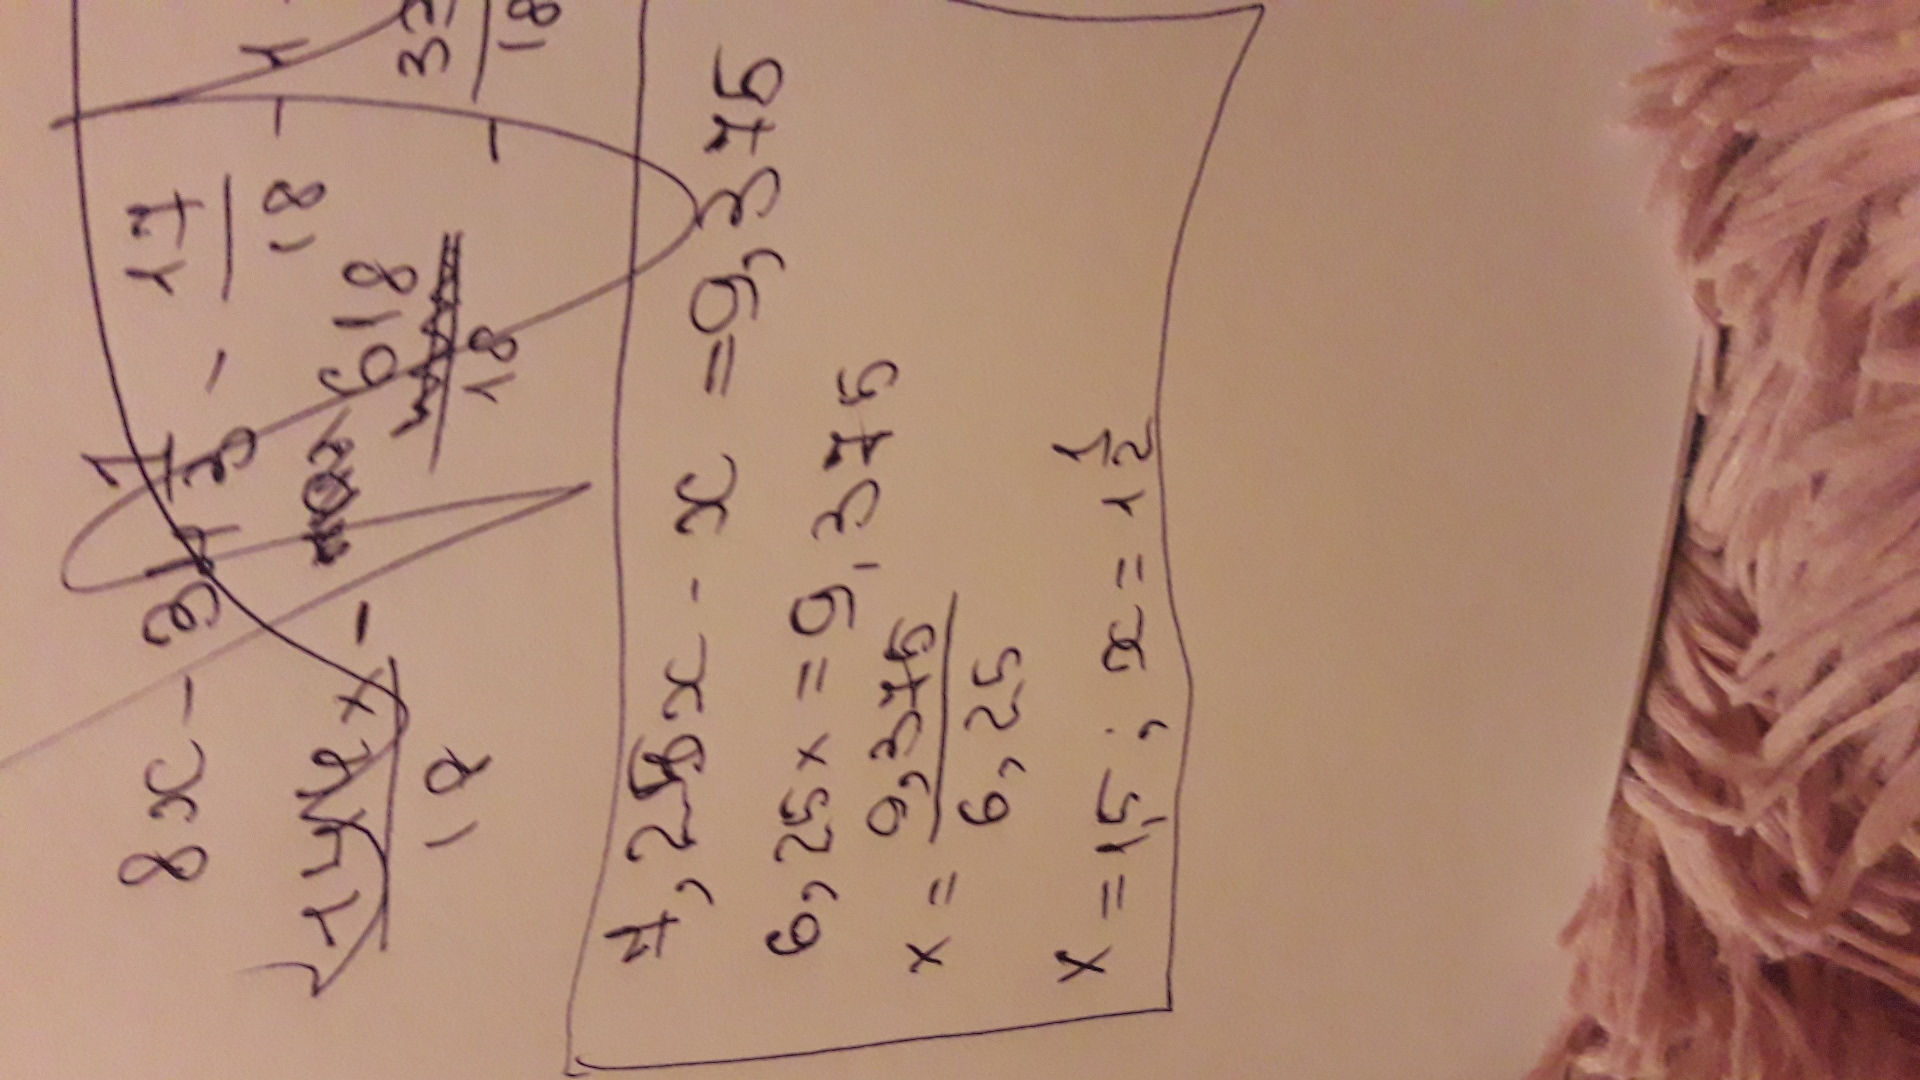 8x - 3
17
18
618
18
32
18
7,25x - x = 9,375
6,25x = 9,375
x = 9,375/6,25
x = 1,5 ; x = 1 1/2